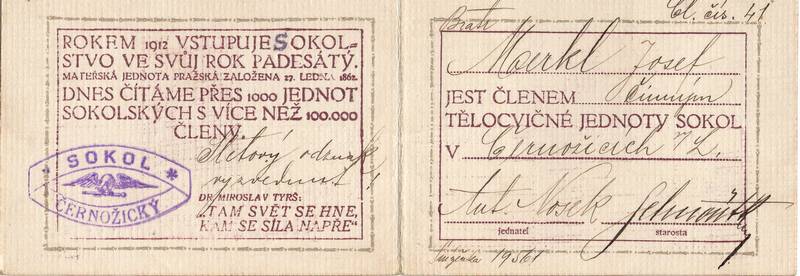 ROKEM 1912 VSTUPUJE SOKOL-
STVO VE SVŮJ ROK PADESÁTÝ.
MATEŘSKÁ JEDNOTA PRAŽSKÁ ZALOŽENA 27. LEDNA 1862.
DNES ČÍTÁME PŘES 1000 JEDNOT
SOKOLSKÝCH S VÍCE NEŽ 100.000
ČLENY.
Sletový odznak
vyzvednut
DR. MIROSLAV TYRŠ:
„TAM SVĚT SE HNE,
KAM SE SÍLA NAPŘE“
SOKOL
ČERNOŽICKÝ
Čl. čís. 41
Bratr
Merkl Josef
JEST ČLENEM činným
TĚLOCVIČNÉ JEDNOTY SOKOL
V Černožicích n/L.
Ant. Nosek
jednatel starosta